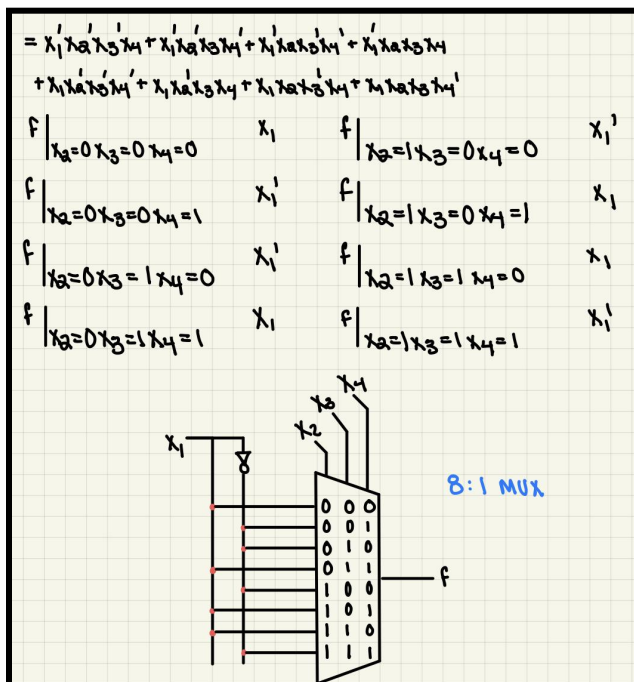 = x₁'x₂'x₃'x₄ + x₁'x₂'x₃x₄' + x₁'x₂x₃'x₄' + x₁'x₂x₃x₄
+ x₁x₂'x₃'x₄' + x₁x₂'x₃x₄ + x₁x₂x₃'x₄ + x₁x₂x₃x₄'
f |x₂=0 x₃=0 x₄=0 x₁ f |x₂=1 x₃=0 x₄=0 x₁'
f |x₂=0 x₃=0 x₄=1 x₁' f |x₂=1 x₃=0 x₄=1 x₁
f |x₂=0 x₃=1 x₄=0 x₁' f |x₂=1 x₃=1 x₄=0 x₁
f |x₂=0 x₃=1 x₄=1 x₁ f |x₂=1 x₃=1 x₄=1 x₁'
x₄
x₃
x₂
x₁
8:1 MUX
0 0 0
0 0 1
0 1 0
0 1 1
f
1 0 0
1 0 1
1 1 0
1 1 1